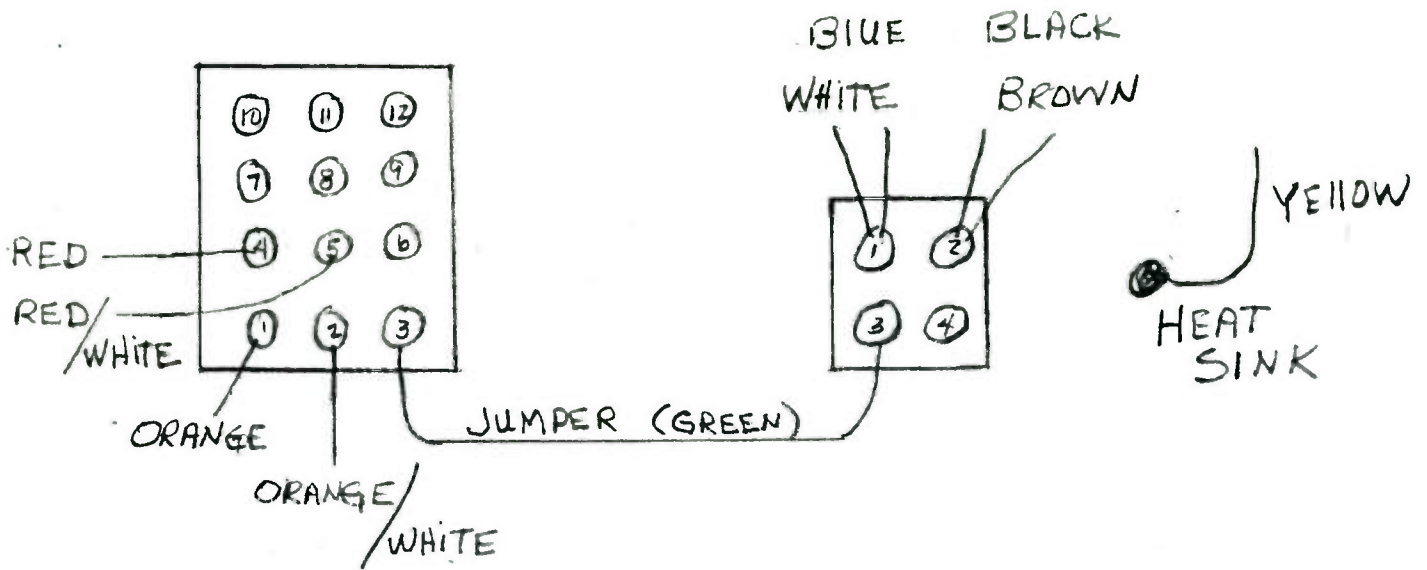 BlUE BLACK
WHITE BROWN
10 11 12
7 8 9
4 5 6
1 2 3
RED
RED/WHiTE
ORANGE
ORANGE/WHiTE
JUMPER (GREEN)
1 2
3 4
YEllOW
HEAT
SINK